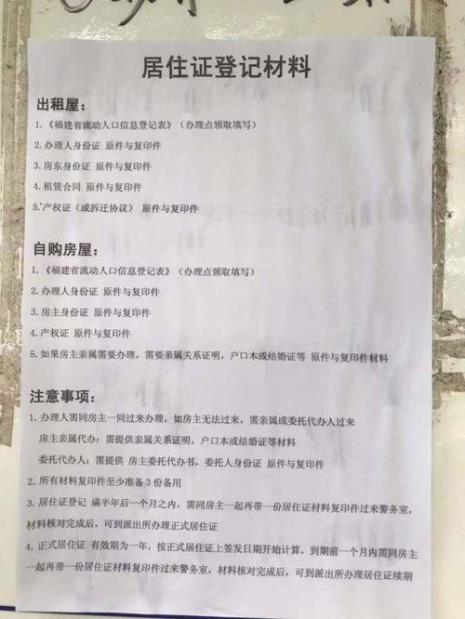 居住证登记材料
出租屋：
1.《福建省流动人口信息登记表》（办理点领取填写）
2. 办理人身份证 原件与复印件
3. 房东身份证 原件与复印件
4. 租赁合同 原件与复印件
5. 产权证（或拆迁协议） 原件与复印件
自购房屋：
1.《福建省流动人口信息登记表》（办理点领取填写）
2. 办理人身份证 原件与复印件
3. 房主身份证 原件与复印件
4. 产权证 原件与复印件
5. 如果房主亲属需要办理，需要亲属关系证明，户口本或结婚证等 原件与复印件材料
注意事项：
1. 办理人需同房主一同过来办理，如房主无法过来，需亲属或委托代办人过来
房主亲属代办：需提供亲属关系证明，户口本或结婚证等材料
委托代办人：需提供 房主委托代办书，委托人身份证 原件与复印件
2. 所有材料复印件至少准备3份备用
3. 居住证登记 满半年后一个月之内，需同房主一起再带一份居住证材料复印件过来警务室，
材料核对完成后，可到派出所办理正式居住证
4. 正式居住证 有效期为一年，按正式居住证上签发日期开始计算，到期前一个月内需同房主
一起再带一份居住证材料复印件过来警务室，材料核对完成后，可到派出所办理居住证续期